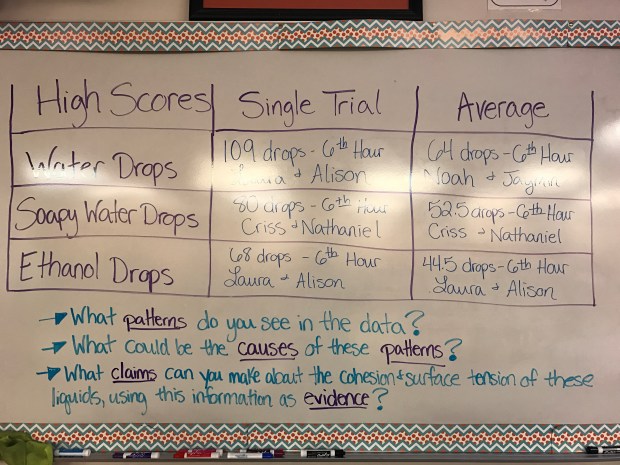 High Scores Single Trial Average
Water Drops
109 drops - 6th Hour
Laura & Alison
64 drops - 6th Hour
Noah &
Soapy Water Drops
80 drops - 6th Hour
Criss & Nathaniel
52.5 drops - 6th Hour
Criss & Nathaniel
Ethanol Drops
68 drops - 6th Hour
Laura & Alison
44.5 drops - 6th Hour
Laura & Alison
→ What patterns do you see in the data?
→ What could be the causes of these patterns?
→ What claims can you make about the cohesion & surface tension of these
liquids, using this information as evidence?